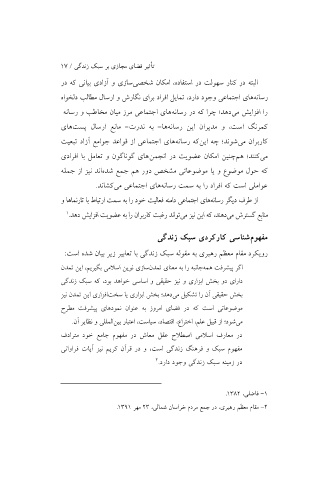 تأثیر فضای مجازی بر سبک زندگی / ۱۷
البته در کنار سهولت در استفاده، امکان شخصی‌سازی و آزادی بیانی که در
رسانه‌های اجتماعی وجود دارد، تمایل افراد برای نگارش و ارسال مطالب دلخواه
را افزایش می‌دهد؛ چرا که در رسانه‌های اجتماعی مرز میان مخاطب و رسانه
کمرنگ است، و مدیران این رسانه‌ها- به ندرت- مانع ارسال پست‌های
کاربران می‌شوند؛ چه این‌که رسانه‌های اجتماعی از قواعد جوامع آزاد تبعیت
می‌کنند؛ هم‌چنین امکان عضویت در انجمن‌های گوناگون و تعامل با افرادی
که حول موضوع و یا موضوعاتی مشخص دور هم جمع شده‌اند نیز از جمله
عواملی است که افراد را به سمت رسانه‌های اجتماعی می‌کشاند.
از طرف دیگر رسانه‌های اجتماعی دامنه فعالیت خود را به سمت ارتباط با تارنماها و
منابع گسترش می‌دهند، که این نیز می‌تواند رغبت کاربران را به عضویت افزایش دهد.۱
مفهوم‌شناسی کارکردی سبک زندگی
رویکرد مقام معظم رهبری به مقوله سبک زندگی با تعابیر زیر بیان شده است:
اگر پیشرفت همه‌جانبه را به معنای تمدن‌سازی نوین اسلامی بگیریم، این تمدن
دارای دو بخش ابزاری و نیز حقیقی و اساسی خواهد بود، که سبک زندگی
بخش حقیقی آن را تشکیل می‌دهد؛ بخش ابزاری یا سخت‌افزاری این تمدن نیز
موضوعاتی است که در فضای امروز به عنوان نمودهای پیشرفت مطرح
می‌شود؛ از قبیل علم، اختراع، اقتصاد، سیاست، اعتبار بین‌المللی و نظایر آن.
در معارف اسلامی اصطلاح عقل معاش در مفهوم جامع خود مترادف
مفهوم سبک و فرهنگ زندگی است، و در قرآن کریم نیز آیات فراوانی
در زمینه سبک زندگی وجود دارد.۲
۱- فاضلی، ۱۳۸۲.
۲- مقام معظم رهبری، در جمع مردم خراسان شمالی، ۲۳ مهر ۱۳۹۱.